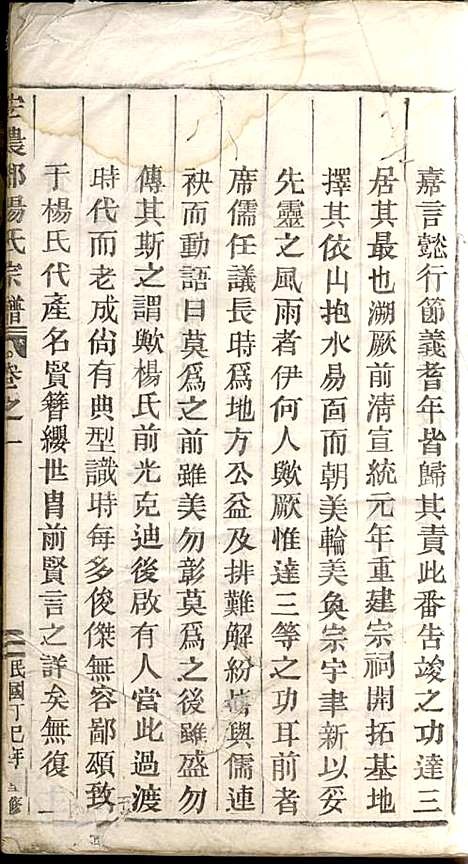 嘉言懿行節義耆年皆歸其責此番告竣之功達三
居其最也溯厥前清宣統元年重建宗祠開拓基地
擇其依山抱水易靣而朝美輪美奐宗宇聿新以妥
先靈之風雨者伊何人歟厥惟達三等之功耳前者
席儒任議長時爲地方公益及排難解紛嘗與儒連
袂而動語曰莫爲之前雖美勿彰莫爲之後雖盛勿
傳其斯之謂歟楊氏前光克迪後啟有人當此過渡
時代而老成尙有典型識時每多俊傑無容鄙頌致
于楊氏代產名賢簪纓世胄前賢言之詳矣無復
農郡楊氏宗譜 卷之一 一 民國丁巳年 修